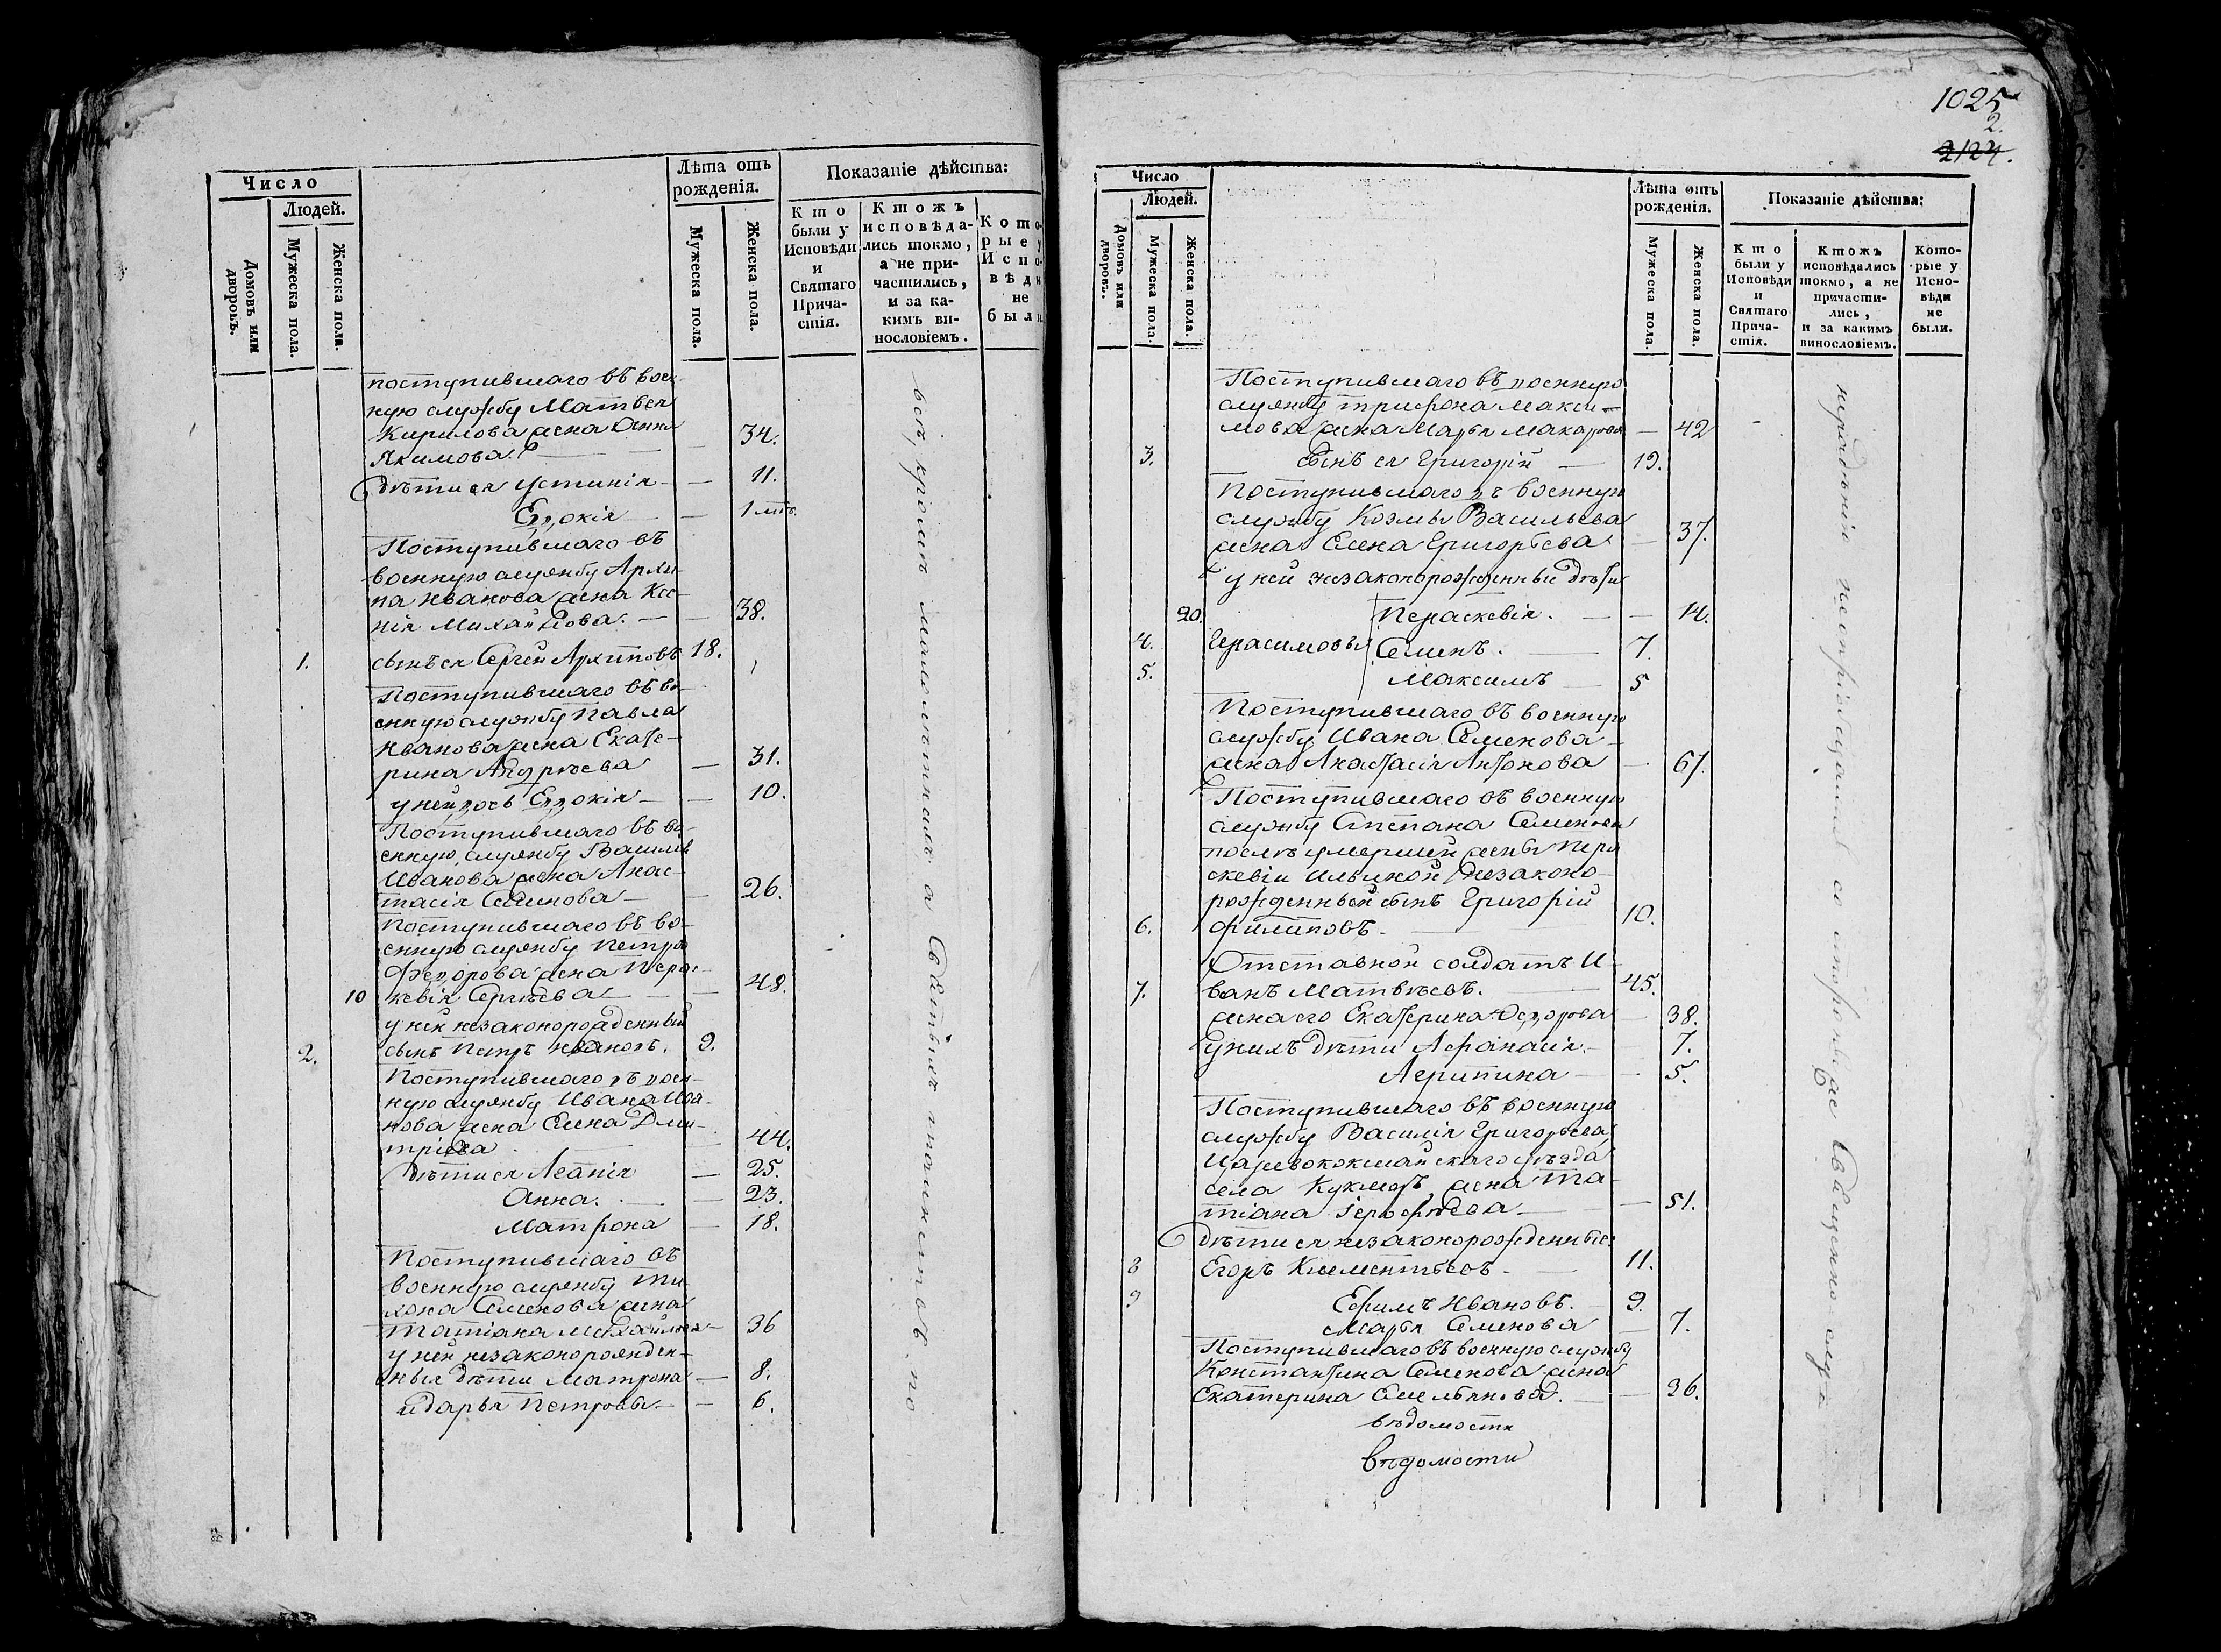 Число
Людей.
Домовъ или дворовъ.
Мужеска пола.
Женска пола.
Лѣта отъ рожденія.
Мужеска пола.
Женска пола.
Показаніе дѣйства:
Кто были у Исповѣди и Святаго Причастія.
Ктожъ исповѣдались токмо, а не причастились, и за какимъ винословіемъ.
Которые у Исповѣди не были.
поступившаго въ воен-
ную службу Матвея
Кирилова жена Анна
Якимова. — 34.
Дѣти ея Устинія — 11.
Евдокія — 1
Поступившаго въ
военную службу Архи-
па Иванова жена Ксе-
нія Михайлова. — 38.
1. сынъ ея Сергей Архиповъ 18.
Поступившаго въ во-
енную службу Павла
Иванова жена Екате-
рина Андреева — 31.
у ней дочь Евдокія — 10.
Поступившаго въ во-
енную службу Василья
Иванова жена Анас-
тасія Семенова — 26.
Поступившаго въ во-
енную службу Петра
Федорова жена Парас-
10 кевія Сергѣева — 48.
у ней незаконорожденный
2. сынъ Петръ Ивановъ. 9.
Поступившаго въ воен-
ную службу Ивана Ива-
нова жена Елена Дми-
тріева — 44.
Дѣти ея Агапія — 25.
Анна. — 23.
Матрона — 18.
Поступившаго въ
военную службу Ти-
хона Семенова жена
Татіана Михайлова — 36
у ней незаконорожден-
ныя дѣти Матрона — 8.
и Дарья Петровы. — 6.
всѣ, кромѣ малолѣтнихъ а Святыхъ таинствъ по
1025
2.
2124.
Число
Людей.
Домовъ или дворовъ.
Мужеска пола.
Женска пола.
Лѣта отъ рожденія.
Мужеска пола.
Женска пола.
Показаніе дѣйства:
Кто были у Исповѣди и Святаго Причастія.
Ктожъ исповѣдались токмо, а не причастились, и за какимъ винословіемъ.
Которые у Исповѣди не были.
Поступившаго въ военную
службу Трифона Макси-
мова жена Марья Макарова — 42
3. сынъ ея Григорій — 19.
Поступившаго въ военную
службу Козмы Васильева
жена Елена Григорьева — 37.
у ней незаконорожденные дѣти
20. Параскевія. — 14.
4. Герасимовы Семенъ. — 7.
5. Максимъ — 5
Поступившаго въ военную
службу Ивана Семенова
жена Анастасія Антонова — 67.
Поступившаго въ военную
службу Степана Семенова
послѣ умершей жены Пара
скевіи Ильиной незаконо-
рожденный сынъ Григорій
6. Филиповъ. — 10.
Отставной солдатъ И-
7. ванъ Матвѣевъ. — 45.
жена его Екатерина Федорова — 38.
У нихъ дѣти Афанасія. — 7.
Агрипина — 5.
Поступившаго въ военную
службу Василія Григорьева,
Царевококшайскаго уѣзда
села Кукморъ, жена Та-
тіана Іерофѣева — 51.
Дѣти ея незаконорожденные:
8 Егоръ Климентьевъ — 11.
9 Ефимъ Ивановъ. 9.
Марья Семенова — 7.
Поступившаго въ военную службу
Константина Семенова жена
Екатерина Емельянова. — 36.
вѣдомости
Вѣдомости